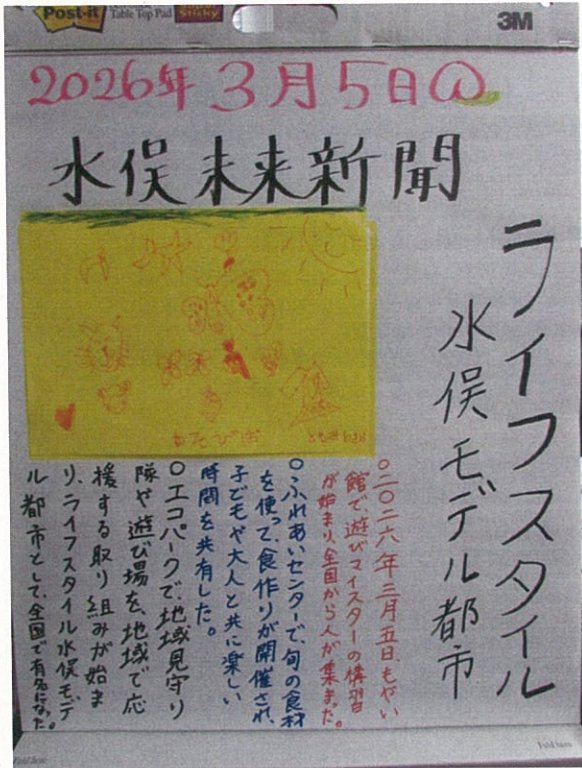 Post-it
Table Top Pad
Sticky
3M
2026年3月5日
水俣未来新聞
ライフスタイル
水俣モデル都市
あそびば
○二〇二六年三月五日、もやい
館で、遊びマイスターの講習
が始まり、全国から人が集まった。
○ふれあいセンターで、旬の食材
を使って、食作りが開催され、
子どもや大人と共に楽しい
時間を共有した。
○エコパークで、地域見守り
隊や遊び場を、地域で応
援する取り組みが始ま
り、ライフスタイル水俣モデ
ル都市として、全国で有名になった。
Fold here
Fold here